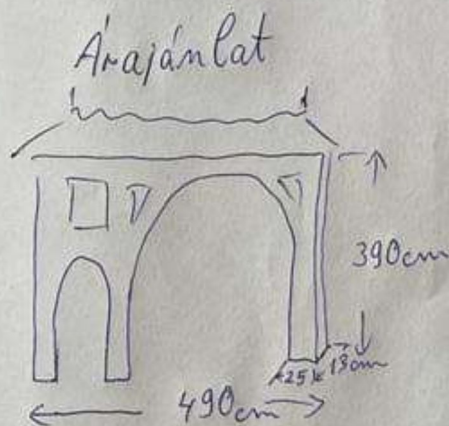 Árajánlat
390cm
25
13cm
490cm